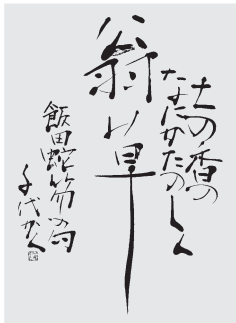 土の香の
なにかたのしく
翁草
飯田蛇笏の句
千代かく